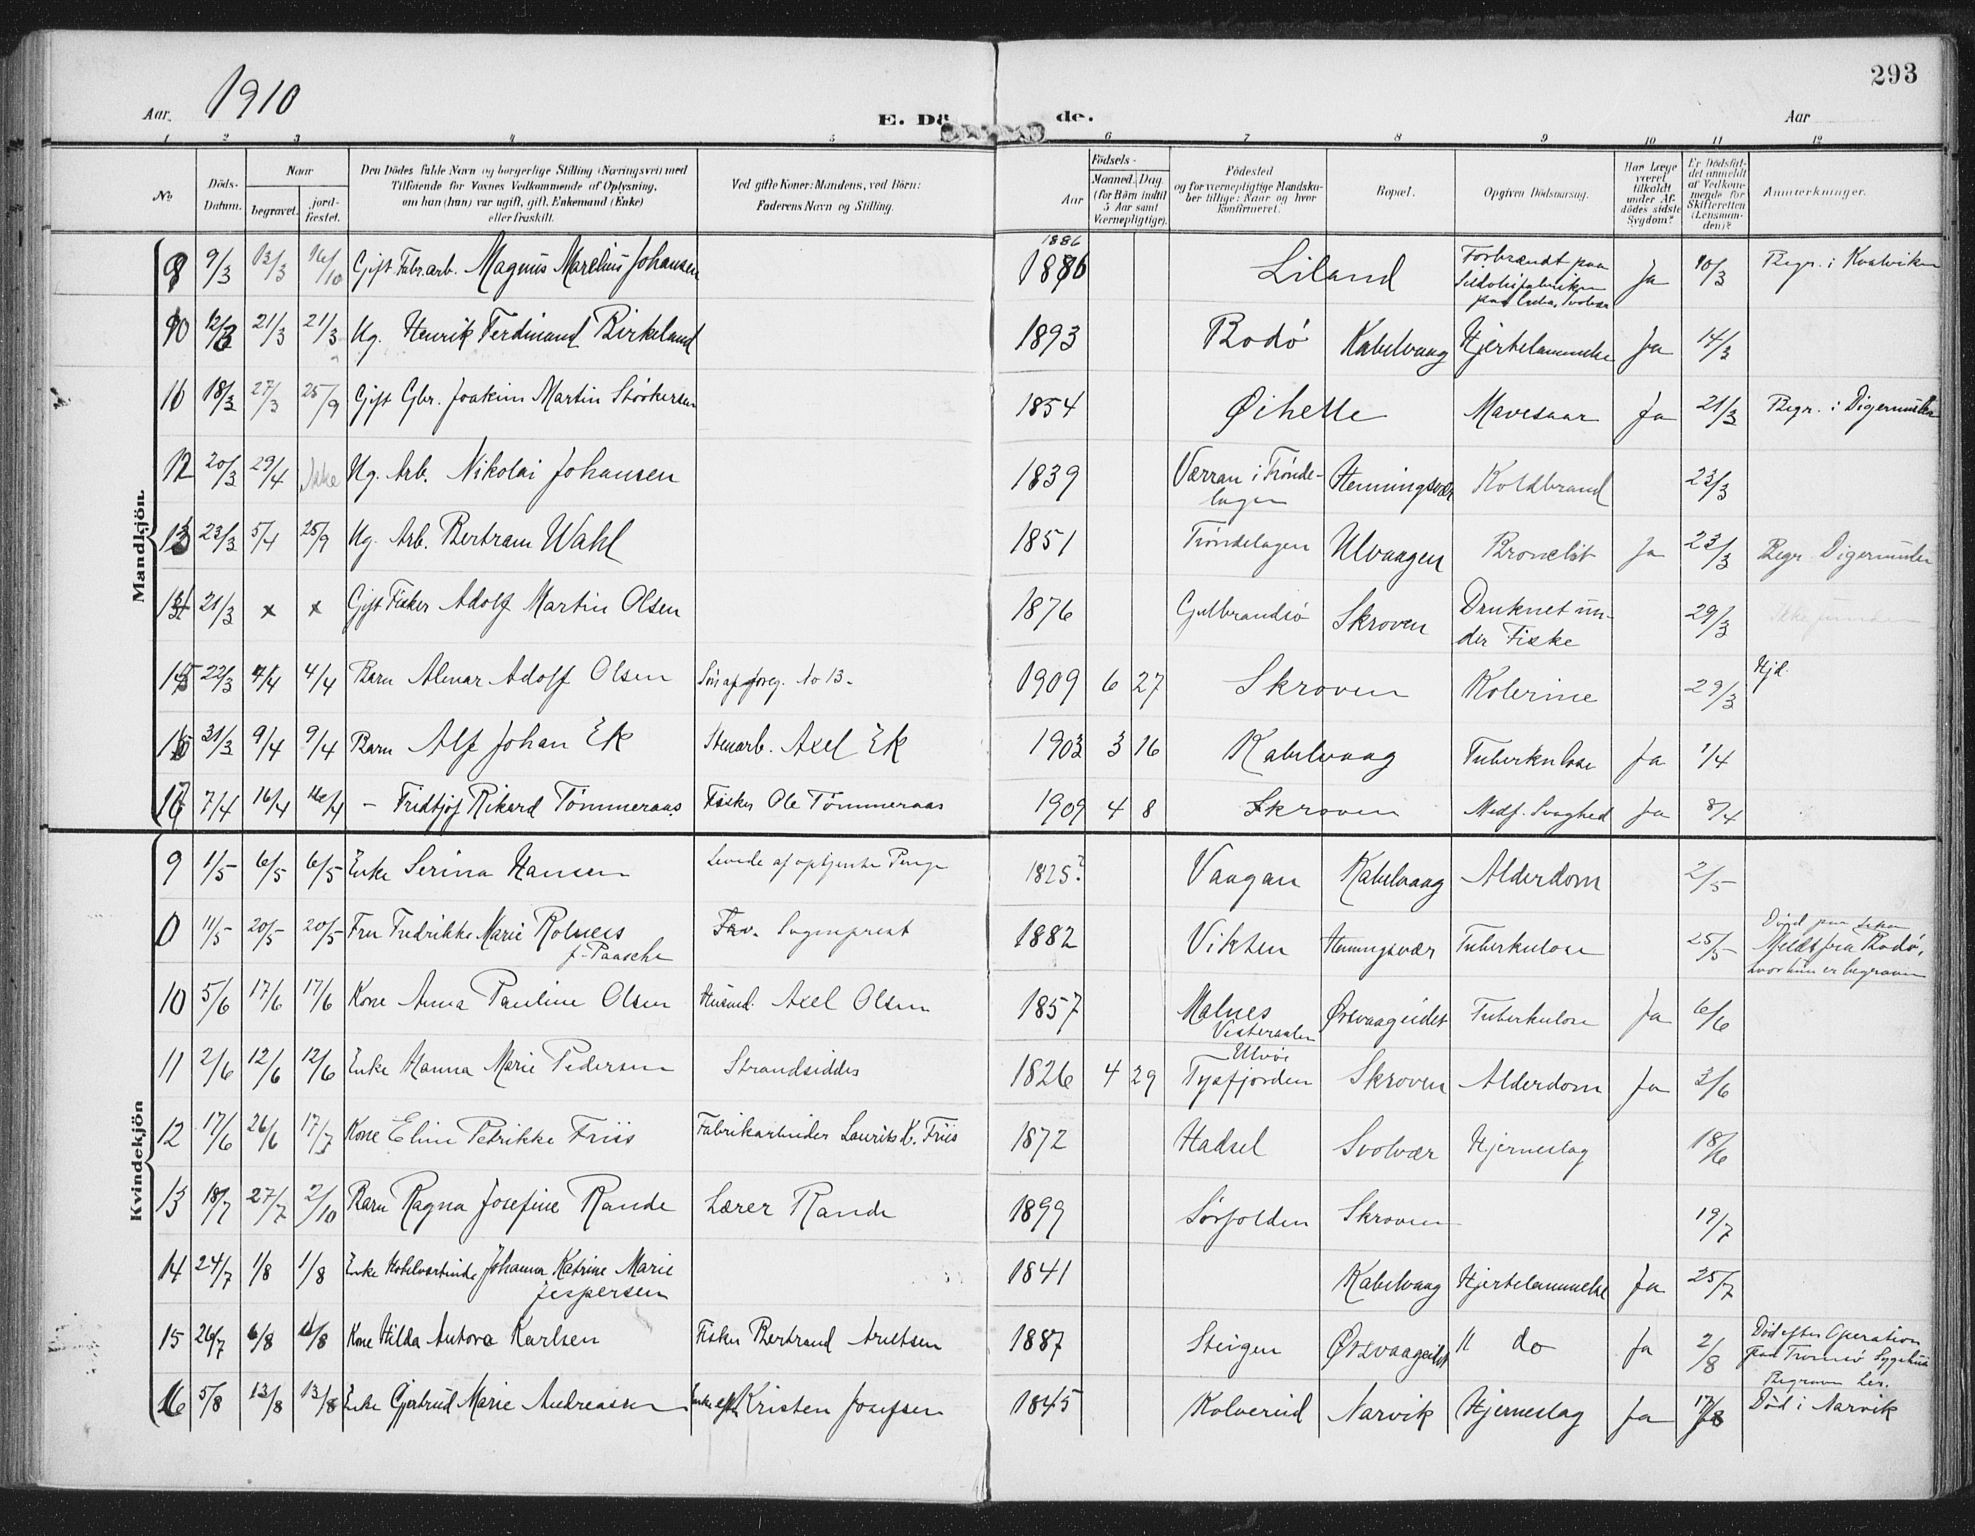 293
Aar. 1910
E. Dö de.
Aar
1 2 3 4 5 6 7 8 9 10 11 12
No
Döds-Datum.
Naar
begravet.
jord-fæstet.
Den Dödes fulde Navn og borgerlige Stilling (Næringsvei) med
Tilföiende for Voxnes Vedkommende af Oplysning,
om han (hun) var ugift, gift, Enkemand (Enke)
eller fraskilt.
Ved gifte Koner: Mandens, ved Börn:
Faderens Navn og Stilling.
Födsels-
Aar
Maaned. Dag
(for Börn indtil
5 Aar samt
Værnepligtige).
Födested
og for værnepligtige Mandska-
ber tillige: Naar og hvor
konfirmeret.
Bopæl.
Opgiven Dödsaarsag.
Har Læge
været
tilkaldt
under Af-
dödes sidste
Sygdom?
Er Dödsfal-
det anmeldt
af Vedkom-
mende for
Skifteretten
(Lensman-
den)?
Anmærkninger.
Mandkjön.
9/3 13/3 16/10 Gift Fabr.arb. Magnus Marelius Johansen 1886 Liland Forbrændt paa Sildoliefabriken paa Cuba, Svolvær Ja 10/3 Begr. i Kvalviken
10 12/3 21/3 21/3 Ug. Henrik Ferdinand Birkeland 1893 Bodö Kabelvaag Hjertelammelse Ja 14/3
18/3 27/3 25/9 Gift Gbr. Joakim Martin Störkersen 1854 Øihelle Mavesaar Ja 21/3 Begr. i Digermulen
12 20/3 29/4 Ikke Ug. Arb. Nikolai Johansen 1839 Værran i Trönde-lagen Henningsvær Koldbrand 23/3
13 23/3 5/4 25/9 Ug. Arb. Bertram Wahl 1851 Tröndelagen Ulvaagen Bronchit Ja 23/3 Begr. Digermulen
21/3 × × Gift Fisker Adolf Martin Olsen 1876 Gulbrandsö Skroven Druknet un-der Fiske 29/3 Ikke funden
22/3 4/4 4/4 Barn Almar Adolf Olsen Sön af foreg. No 13. 1909 6 27 Skroven Kolerine 29/3 Hjd.
31/3 9/4 9/4 Barn Alf Johan Ek Stenarb. Axel Ek 1903 3 16 Kabelvaag Tuberkulose Ja 1/4
7/4 16/4 16/4 – Fridtjof Rikard Tömmeraas Fisker Ole Tömmeraas 1909 4 8 Skroven Medf. Svaghed Ja 8/4
Kvindekjön
9 1/5 6/5 6/5 Enke Serina Hansen Levede af optjente Penge 1825? Vaagan Kabelvaag Alderdom 2/5
0 11/5 20/5 20/5 Fru Fredrikke Marie Rolness f. Paasche Sogneprest 1882 Vikten Henningsvær Tuberkulose 25/5 Död paa Meldt fra Bodö, hvor hun er begraven
10 5/6 17/6 17/6 Kone Anna Pauline Olsen Husmd. Axel Olsen 1857 Malnes Vesteraalen Østvaageidet Tuberkulose Ja 6/6
11 2/6 12/6 12/6 Enke Hanna Marie Pedersen Strandsidder 1826 4 29 Ulvöi Tysfjorden Skroven Alderdom Ja 3/6
12 17/6 26/6 17/7 Kone Elin Petrikke Friis Fabrikarbeider Laurits K. Friis 1872 Hadsel Svolvær Hjerneslag 18/6
13 18/7 27/7 2/10 Barn Ragna Josefine Rande Lærer Rande 1899 Sörfolden Skroven 19/7
14 24/7 1/8 1/8 Enke Hotelvertinde Johanna Katrine Marie Jespersen 1841 Kabelvaag Hjertelammelse Ja 25/7
15 26/7 6/8 6/8 Kone Hilda Antora Karlsen Fisker Bertrand Arntsen 1887 Steigen Østvaageidet " do Ja 2/8 Död efter Operation paa Tromsö Sygehus Begraven her.
16 5/8 13/8 13/8 Enke Gjertrud Marie Andreassen Enke eft. Kristen Josefsen 1845 Kolvereid Narvik Hjerneslag Ja 17/8 Död i Narvik